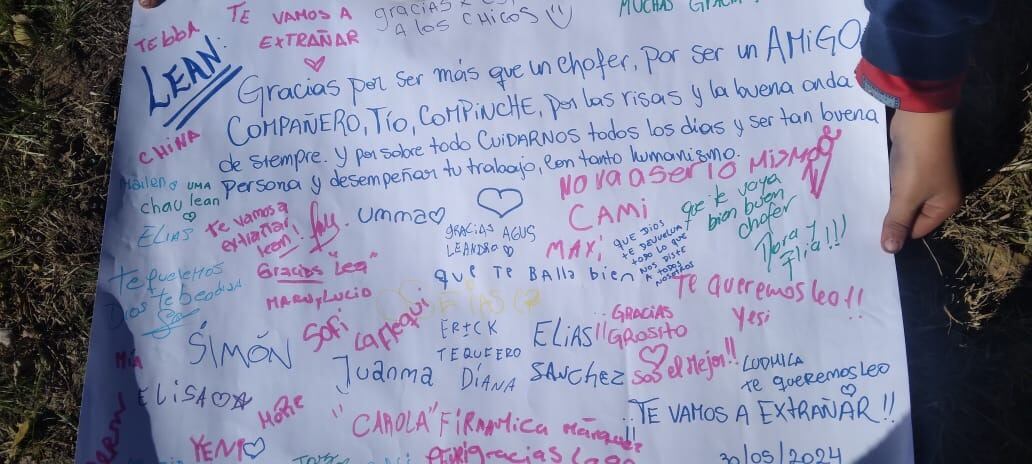 TE VAMOS A
EXTRAÑAR
gracias
A los CHICOS
MUCHAS
LEAN.
Gracias por ser más que un chofer, por ser un AMIGO
COMPAÑERO, TÍO, COMPINCHE, por las risas y la buena onda
de siempre. Y por sobre todo CUIDARNOS todos los días y ser tan buena
persona y desempeñar tu trabajo, con tanto humanismo.
CHINA
NO VA a SER lo MISMO
Mailen
UMA
chau lean
ELIAS
te vamos a
extrañar
lean!
Umma
GRACIAS AGUS
LEANDRO
CAMI
MAXi
QUE DIOS
TE DEVUELVA
TODO LO QUE
NOS DISTE
A TODOS
NOSOTROS
que te vaya
bien buen
chofer
Flia!!!
Gracias "Lea"
MARU y LUCIO
Que TE BAllA bien
Te queremos leo!!
Yesi
Dios
SIMÓN
SOFI
ERICK
TE QUERO
DÍANA
ELIAS
SANCHEZ
GRACIAS
GROSITO
sos el Mejor!!
LUDMILA
te queremos LEO
TE VAMOS A EXTRAÑAR!!
MÍA
ELISA
Juanma
"CAROLA"
Mica Márquez
YENI
gracias
30/05/2024